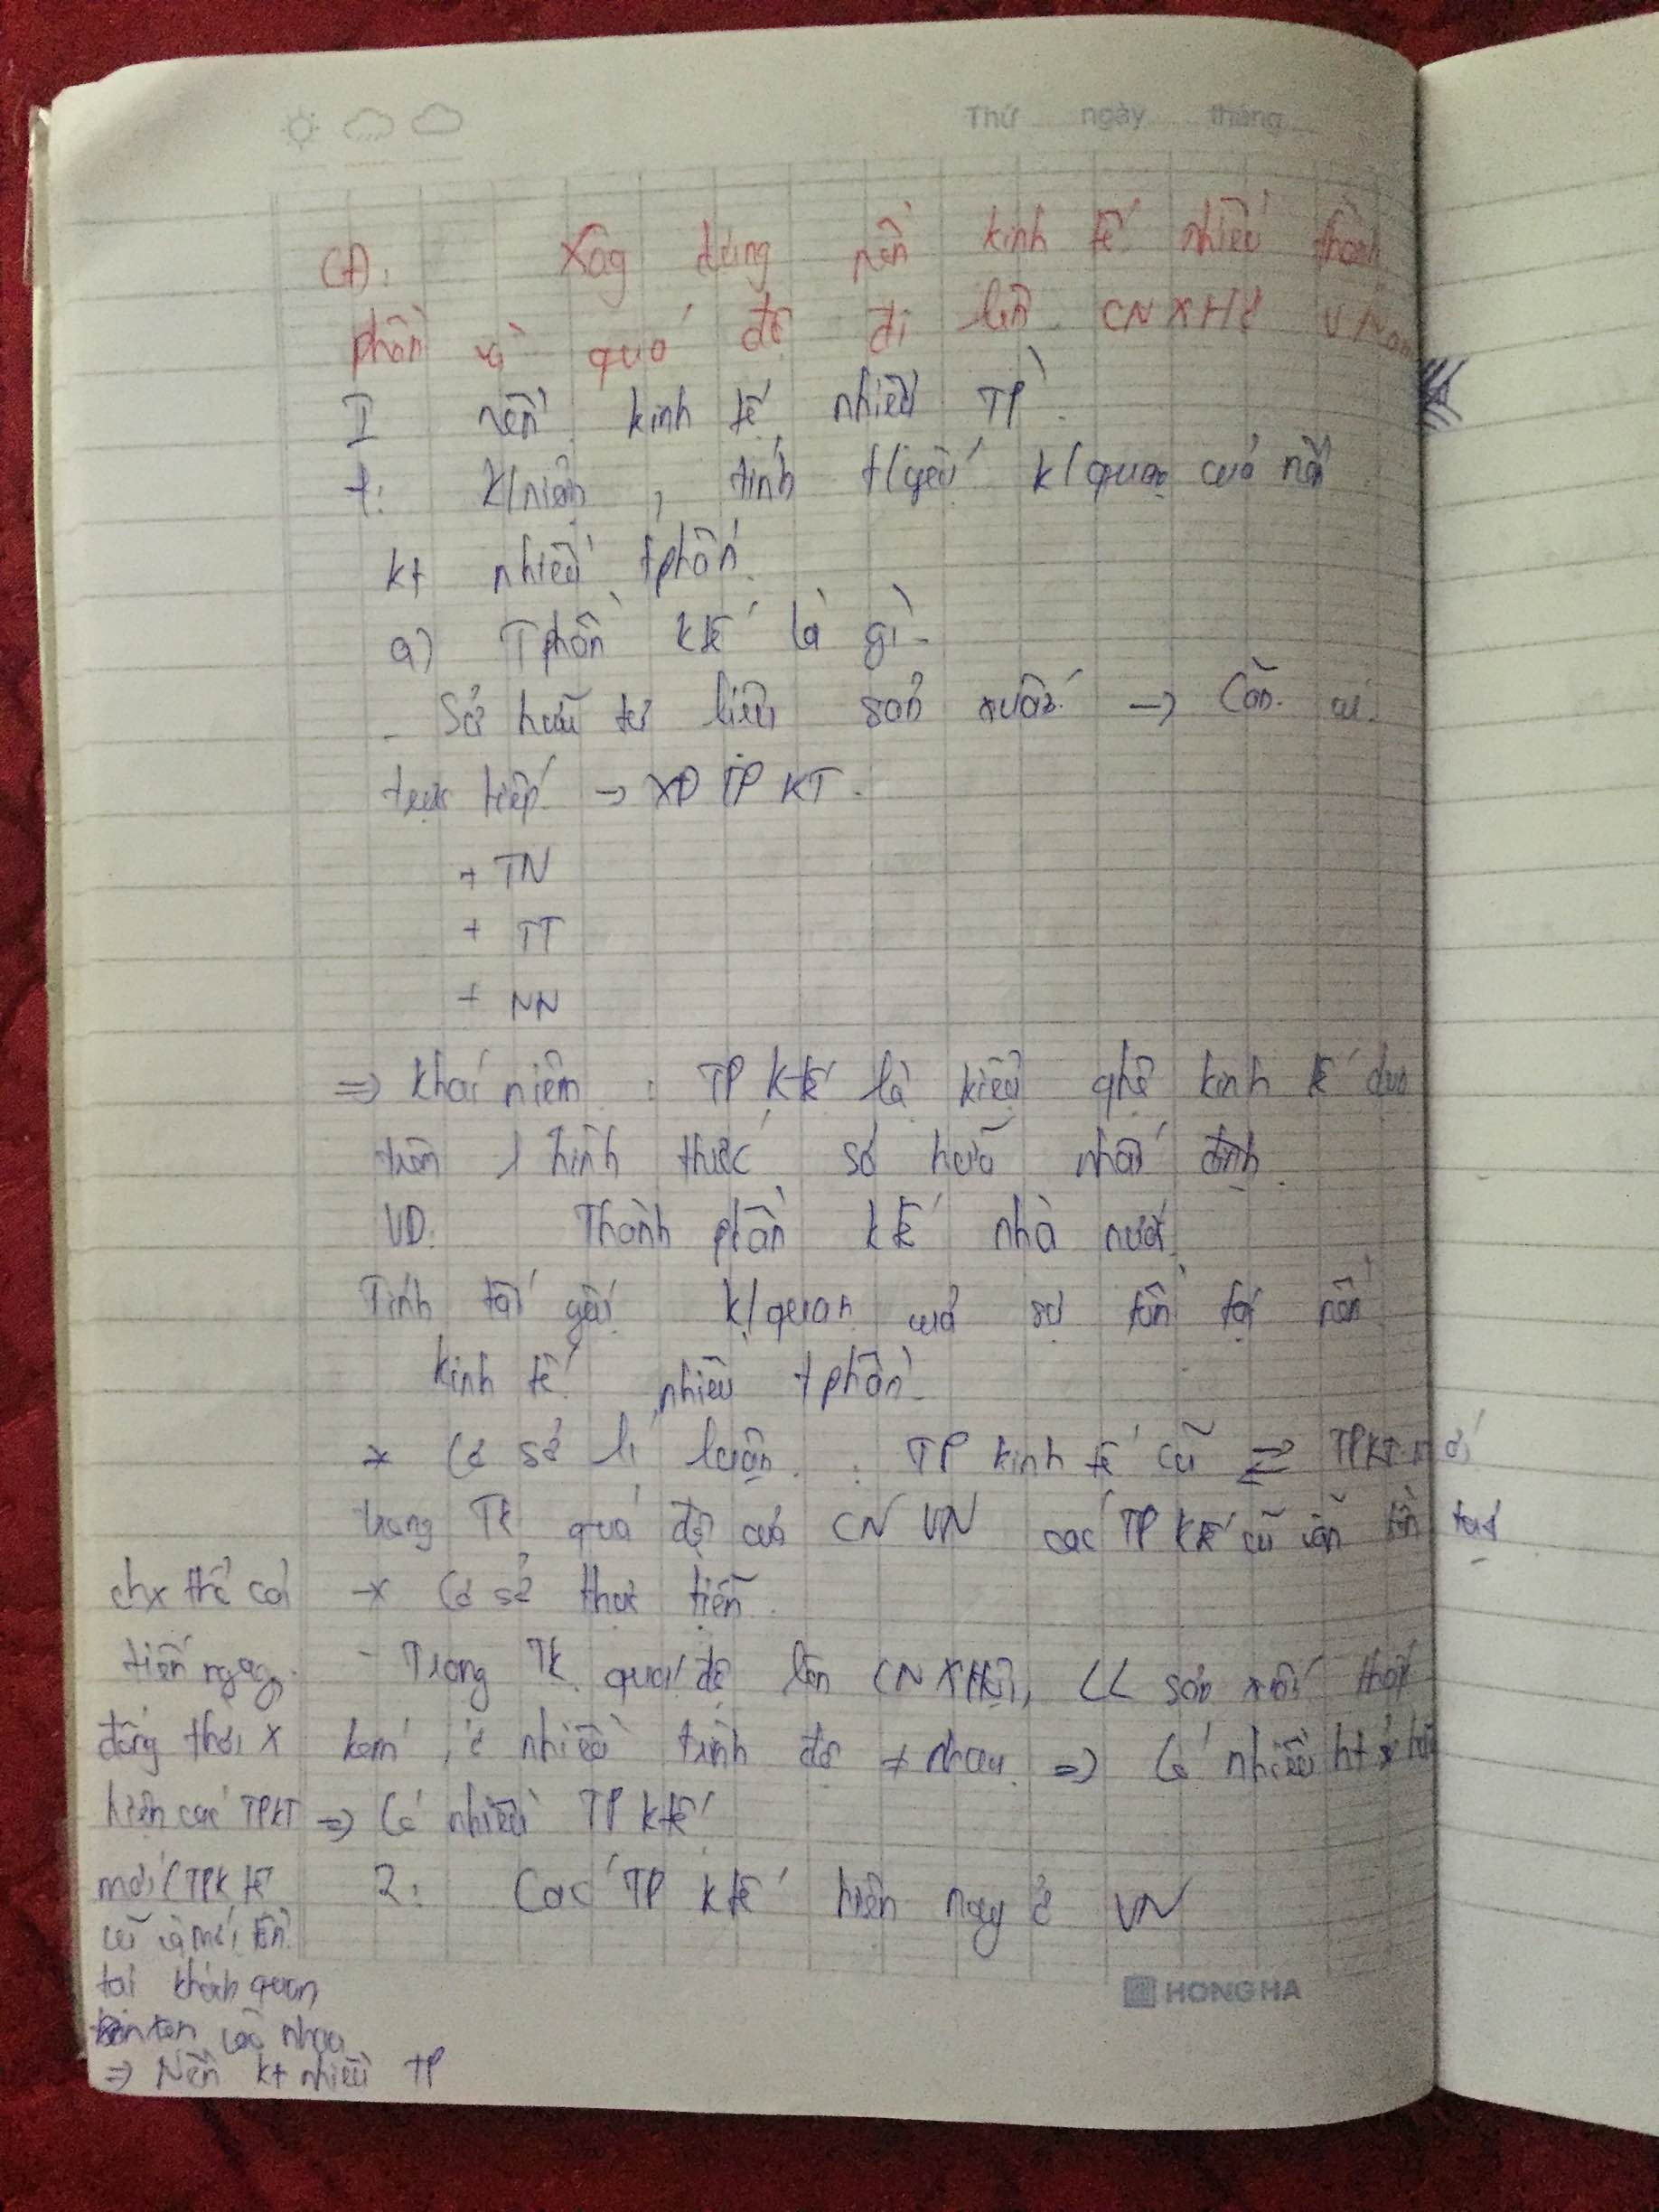 Thứ ngày tháng
CĐ: Xây dựng nền kinh tế nhiều thành
phần và quá độ đi lên CNXH ở VNam
I nền kinh tế nhiều TP
1. K/niệm, tính t/yếu k/quan của nền
kt nhiều tphần
a) Tphần ktế là gì
- Sở hữu tư liệu sản xuất → Căn cứ
trực tiếp → XĐ TP KT.
+ TN
+ TT
+ NN
=> khái niệm: TP ktế là kiểu qhệ kinh tế dựa
trên 1 hình thức sở hữu nhất định
VD: Thành phần ktế nhà nước
Tính tất yếu k/quan của sự tồn tại nền
kinh tế nhiều tphần
* Cơ sở lí luận: TP kinh tế cũ ⇄ TPKT mới
trong TK quá độ của CN VN các TP Ktế cũ vẫn tồn tại
* Cơ sở thực tiễn
- Trong TK quá độ lên CNXHội, LL sản xuất thấp
kém, ở nhiều trình độ ≠ nhau => Có nhiều ht sở hữu
=> Có nhiều TP ktế
2: Các TP ktế hiện nay ở VN
chx thể cải
tiến ngay,
đồng thời x
hiện các TPKT
mới (TPK tế
cũ và mới tồn
tại khách quan
với nhau
=> Nền kt nhiều TP
HONG HA